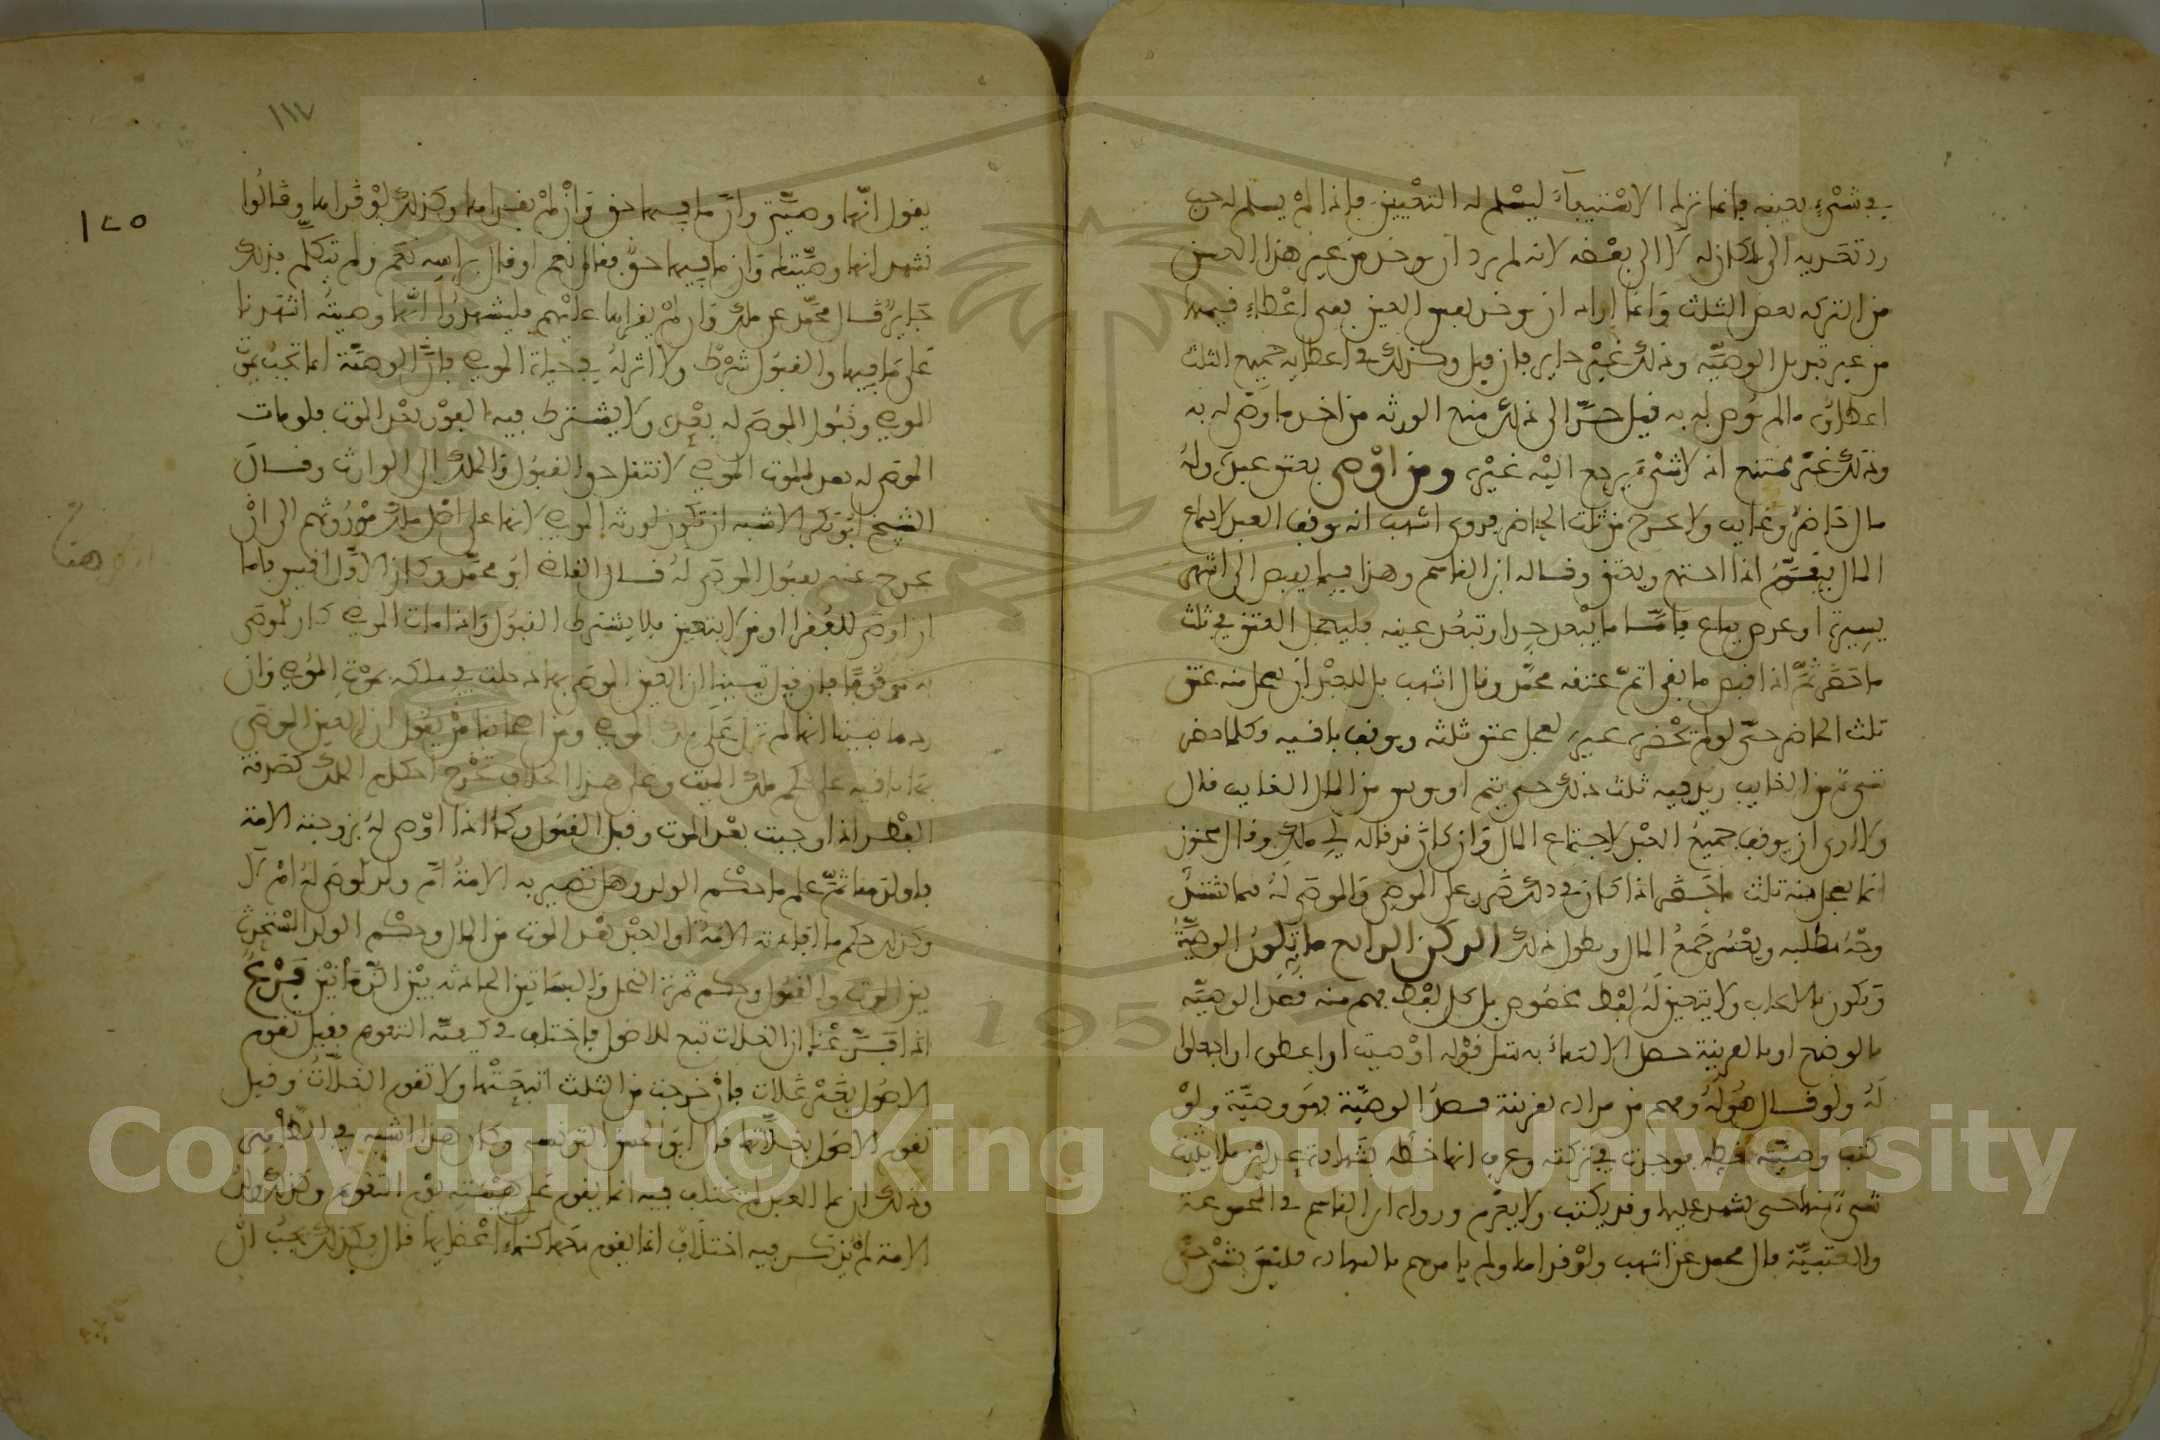 في شيء بعينه فانما نزله الاستيفاء ليسلم له التعيين فاذا لم يسلم له حين
رد تحديه الى ما كان له لا الى بعضه لانه لم يرد ان يوخذ من غير هذا الجنس
من التركة بعض الثلث وانما اراد ان يوخذ بعين العين يعني اعطاء قيمتها
من غير تبديل الوصية وذلك غير جايز فان قيل وكذلك في اعطايه جميع الثلث
اعطاؤه ما لم يوص له به قيل جرا الى ذلك منع الورثة من اخذ ما وصى له به
وذلك غير ممتنع اذ لا شيء يرجع اليه غيره ومن اوصى بعتق عبده وله
مال حاضر وغايب ولا يخرج من ثلث الحاضر فروى اشهب انه يوقف العبد لاجتماع
المال فيقوم اذا اجتمع ويعتق وقاله ابن القاسم وهذا فيما يقبض الى اشهر
يسيرة او عرض يباع فاما ما يبعد جدا وتبعد غيبته فليعجل العتق في ثلث
ما حضر ثم اذا قبض ما بقي اتم عتقه محمد وقال اشهب بل للعبد ان يعجل منه عتق
ثلث الحاضر حتى لو لم يحضر غيره لعجل عتق ثلثه ويوقف باقيه وكلما حضر
شيء من الغايب زيد فيه ثلث ذلك حتى يتم او يويس من المال الغايب قال
ولا ارى ان يوقف جميع العبد لاجتماع المال وان كان قد قاله لي مالك وقال سحنون
انما يعجل منه ثلث ما حضر اذا كان في ذلك ضرر على الموصي والموصى له فيما يشتد
وجه مطلبه ويعسر جمع المال ويطول ذلك الركن الرابع ما تكون الوصية
وتكون بالايجاب ولا يتعين له لفظ مخصوص بل كل لفظ يفهم منه قصد الوصية
بالوضع او بالقرينة حصل الاكتفاء به مثل قوله اوصيت او اعطوا او اجعلوا
له ولو قال هو له وفهم من مراده بقرينة قصد الوصية فهو وصية ولو
كتب وصيته بخطه فوجدت في تركته وعرف انها خطه بشهادة عدلين فلا يثبت
شيء منها حتى يشهد عليها وقد يكتب ولا يعزم ورواه ابن القاسم في المجموعة
والعتبية قال محمد عن اشهب ولو قراها ولم يامرهم بالشهادة فليس بشيء حتى
١١٧
١٢٥
يقول انها وصية وان ما فيها حق وان لم يقراها وكذلك لو قراها وقالوا
نشهد انها وصيتك وان ما فيها حق فقال نعم او قال براسه نعم ولم يتكلم فذلك
جايز قال محمد عن ملك وان لم يقراها عليهم فليشهدوا انها وصيته اشهدنا
على ما فيها والقبول شرط ولا اثر له في حياة الموصي فان الوصية انما تجب بموت
الموصي وقبول الموصى له بعده ولا يشترط فيه الفور بعد الموت فلو مات
الموصى له بعد موت الموصي لانتقل حق القبول والملك الى الوارث وقال
الشيخ ابو بكر الاشبه ان تكون لورثة الموصي لانها على اصل ملك موروثهم الى ان
يخرج عنه بقبول الموصى له قال القاضي ابو محمد وكان الاول اقيس فاما
ان اوصى للفقرا او من لا يتعين فلا يشترط القبول واذا مات الموصي كان الموصى
به موقوفا فان قيل تبينا ان العين الموصى بها دخلت في ملكه بموت الموصي وان
رد ما تبينا انها لم تزل على ملك الموصي ومن اصحابنا من يقول ان العين الموصى
بها باقية على حكم ملك الميت وعلى هذا الخلاف تخرج احكام الملك كصدقة
الفطر اذا وجبت بعد الموت وقبل القبول وكما اذا اوصى له بزوجته الامة
فاولدها ثم علم ما حكم الولد وهل تصير به الامة ام ولد للموصى له ام لا
وكذلك حكم ما افادته الامة او العبد بعد الموت من المال وحكم الولد المستحدث
بين الموت والقبول وحكم ثمرة النخل والبساتين الحادثة بين الزمانين فرع
اذا فرعنا ان الغلات تبع للاصول فاختلف في كيفية التقويم فقيل تقوم
الاصول بغير غلات فان خرجت من الثلث اتبعتها ولا تقوم الغلات وقيل
تقوم الاصول بغلاتها قال ابو اسحق التونسي وكان هذا اشبه في القياس
وذلك ان نما العبد لم يختلف فيه انما يقوم على هيئته يوم التقويم وكذلك ولد
الامة لم يذكر فيه اختلاف انما يقوم معها كنماء اعضايها قال وكذلك يجب ان